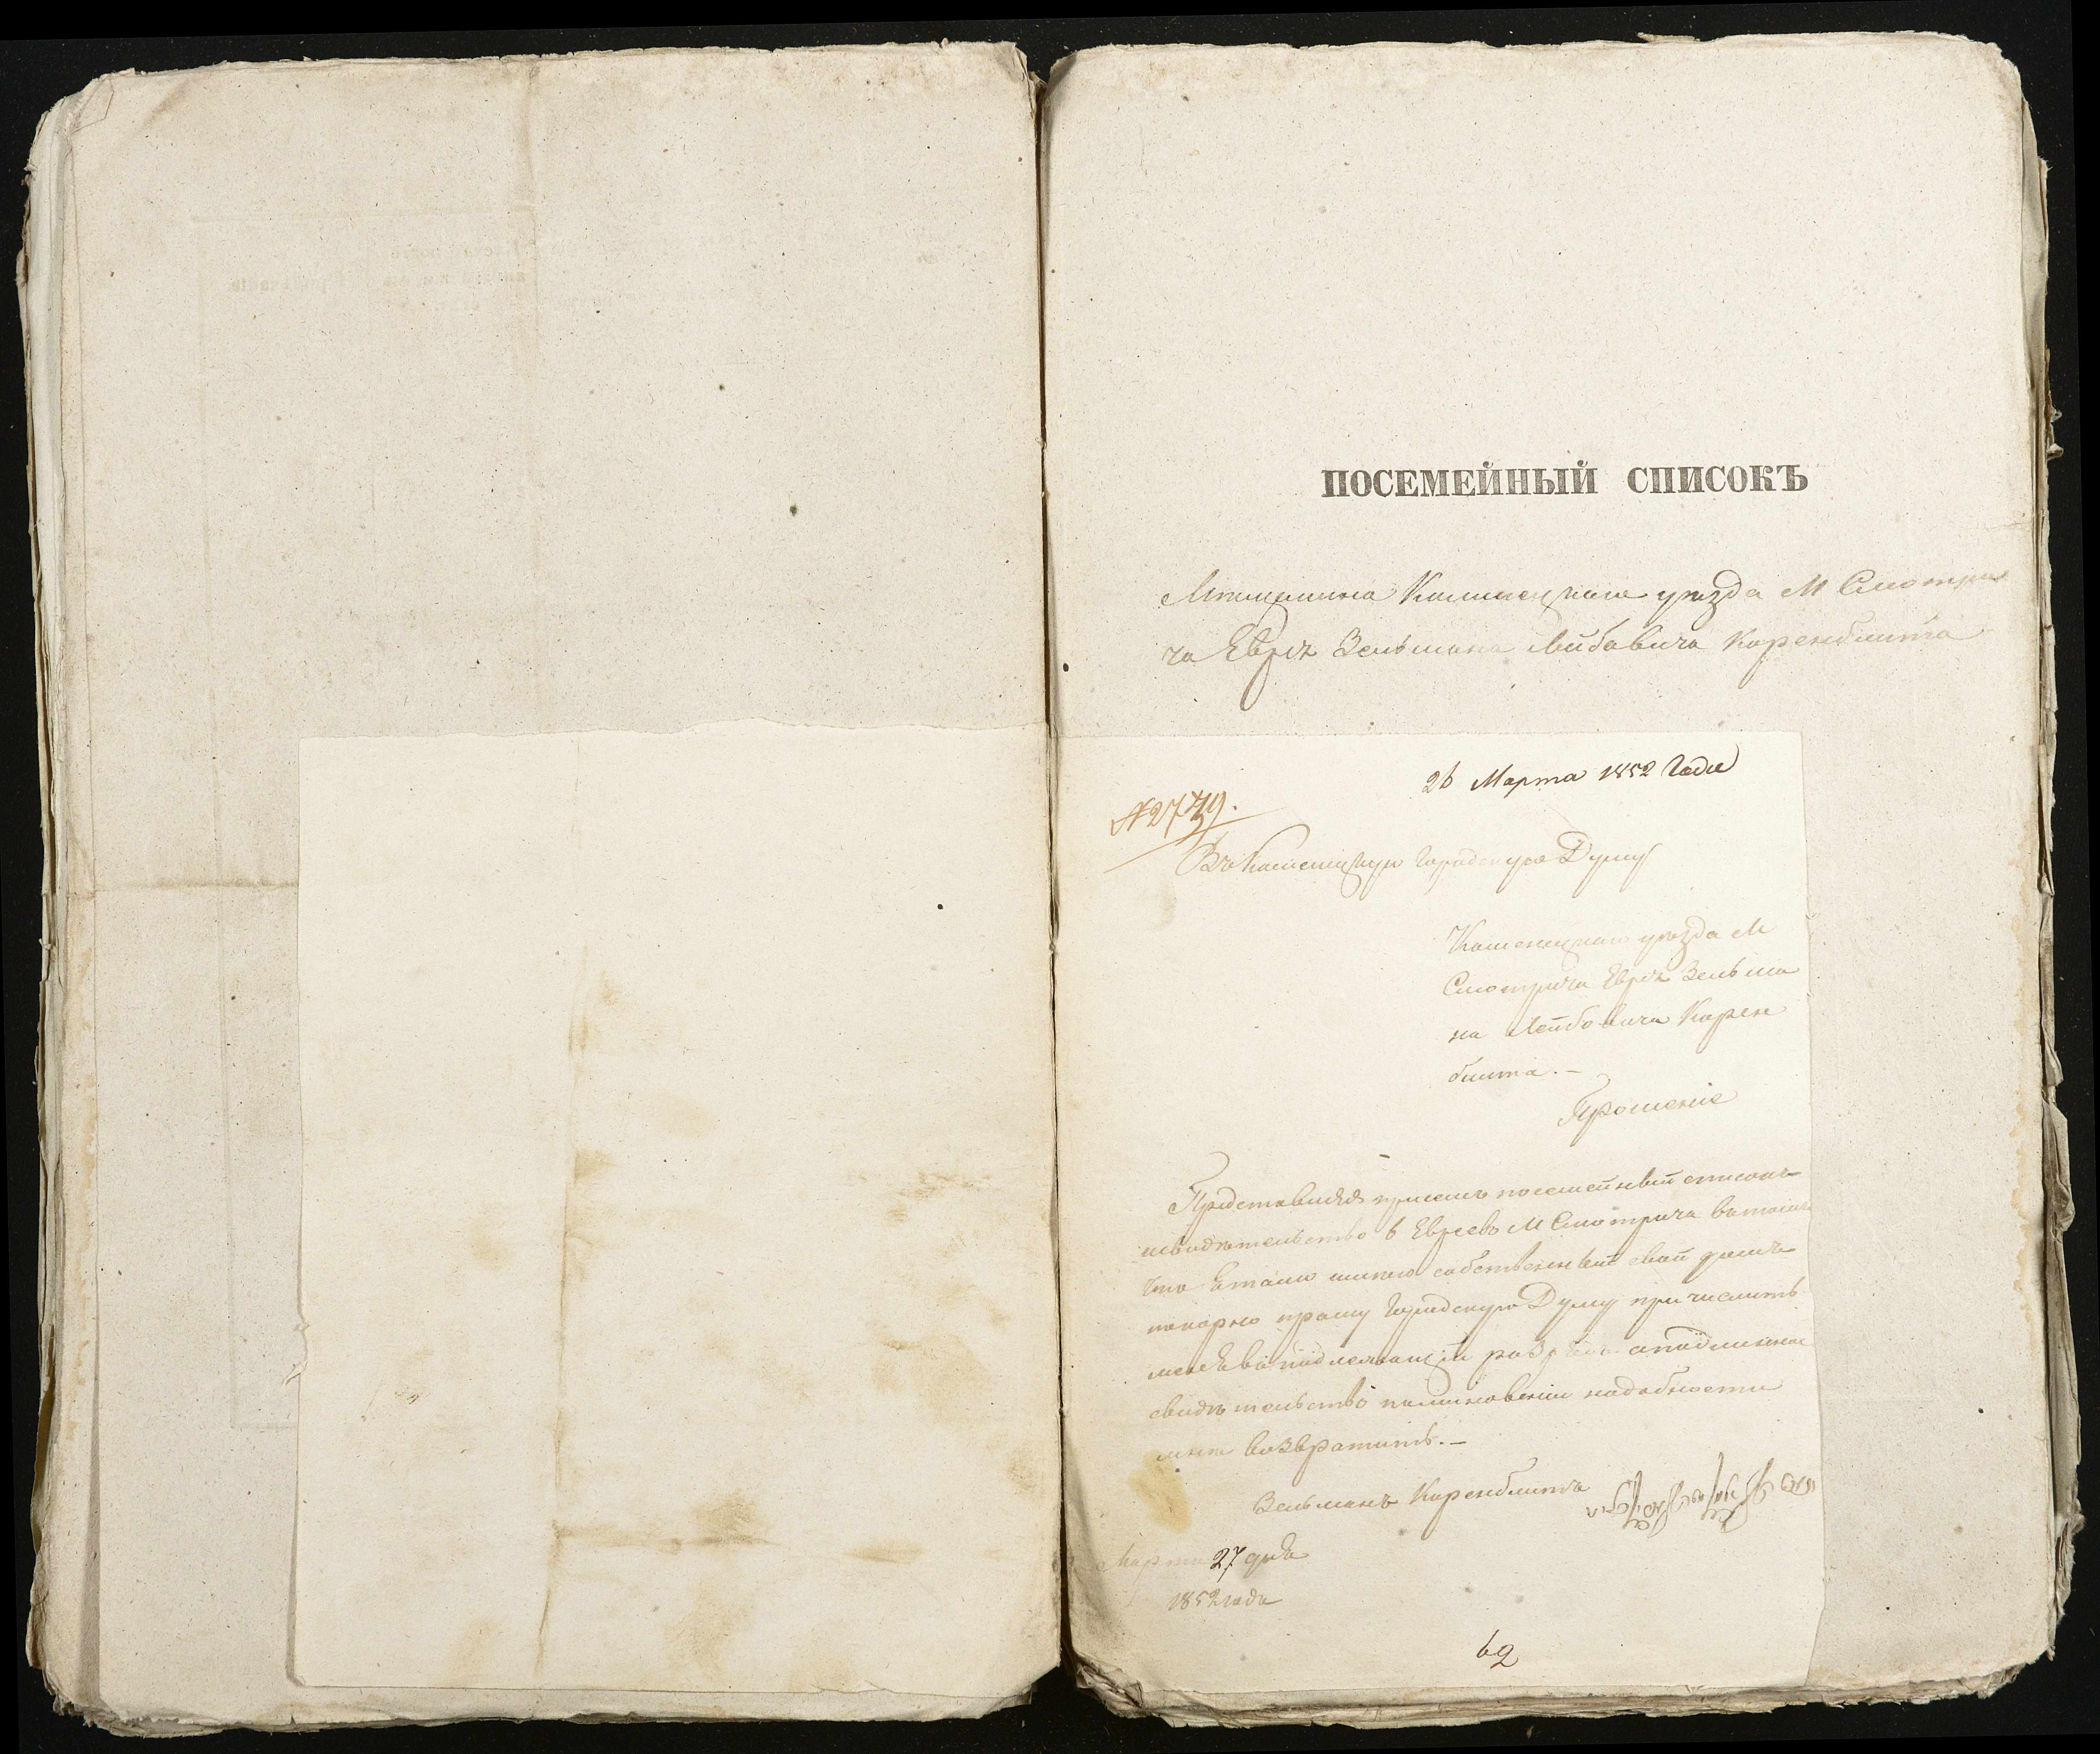 ПОСЕМЕЙНЫЙ СПИСОКЪ
Мѣщанина Каменецкаго уѣзда М Смотри
ча Еврѣя Зельмана Лейбовича Коренблита
26 Марта 1852 Года
№ 2739.
Въ Каменецкую Городскую Думу
Каменецкаго уѣзда М
Смотрича Еврѣя Зельма
на Лейбовича Корен
блита. —
Прошеніе
Представляя при семъ посемейный списокъ
и свидѣтельство 6 Евреевъ М Смотрича въ томъ
что я тамо имѣю собственный свой домъ
покорно прошу Городскую Думу причислить
меня въ подлежащій разрядъ а подлинное
свидѣтельство по миновеніи надобности
мнѣ возвратить. —
Зельманъ Коренблитъ
Марта 27 дня
1852 года
62